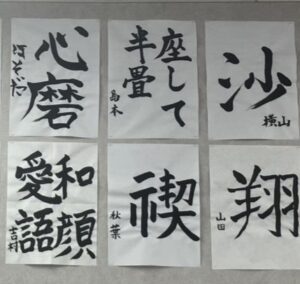 心磨
座して
半畳
沙
横山
和顔
愛語
吉村
禊
秋葉
翔
山田